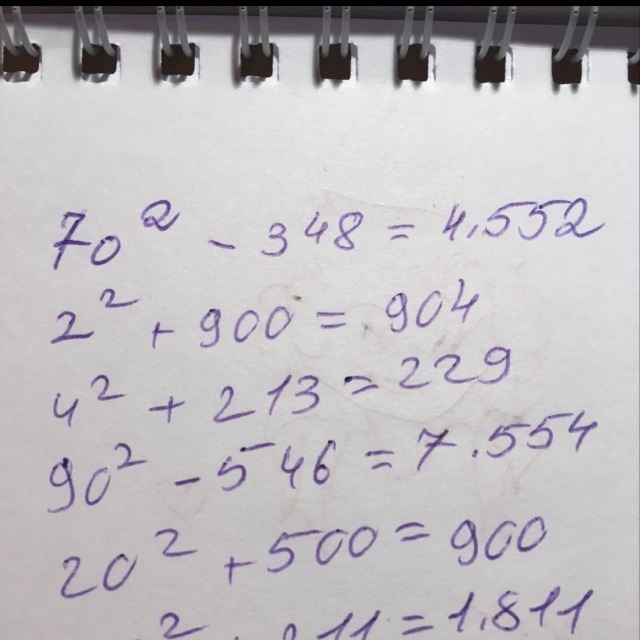 70² - 348 = 4.552
2² + 900 = 904
4² + 213 = 229
90² - 546 = 7.554
20² + 500 = 900
² 11 = 1.811